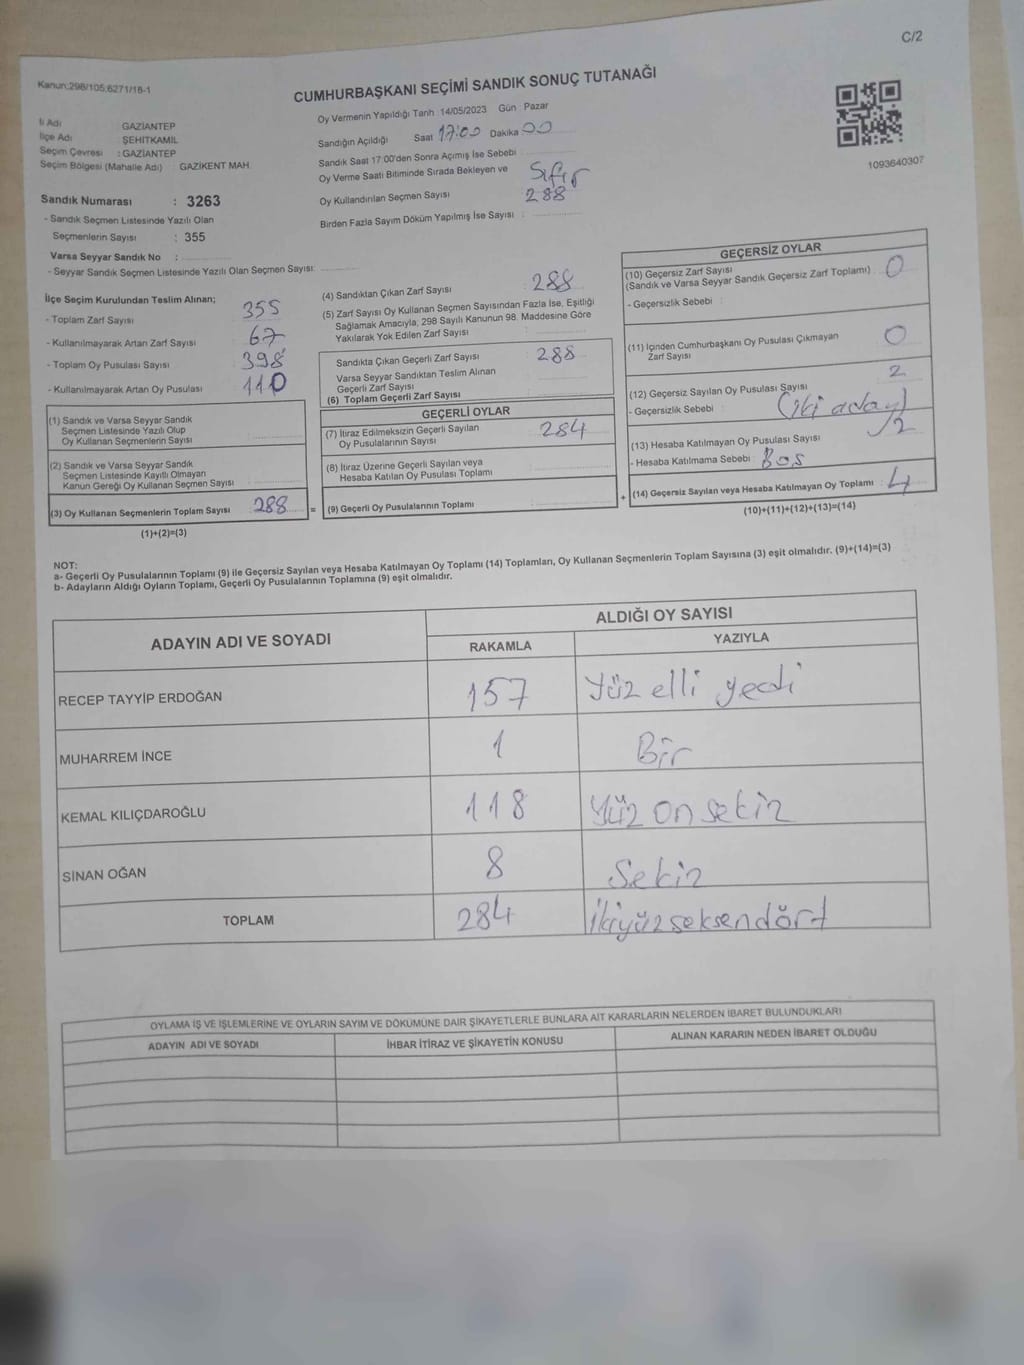 C/2
Kanun:298/105,6271/18-1
CUMHURBAŞKANI SEÇİMİ SANDIK SONUÇ TUTANAĞI
İl Adı GAZİANTEP
İlçe Adı: ŞEHİTKAMİL
Seçim Çevresi : GAZİANTEP
Seçim Bölgesi (Mahalle Adı) : GAZİKENT MAH.
Oy Vermenin Yapıldığı Tarih 14/05/2023 Gün Pazar
Sandığın Açıldığı Saat 17:00 Dakika 00
Sandık Saat 17:00'den Sonra Açımış İse Sebebi :
Oy Verme Saati Bitiminde Sırada Bekleyen ve Sıfır
Oy Kullandırılan Seçmen Sayısı 288
Birden Fazla Sayım Döküm Yapılmış İse Sayısı :
1093640307
Sandık Numarası : 3263
- Sandık Seçmen Listesinde Yazılı Olan
Seçmenlerin Sayısı : 355
Varsa Seyyar Sandık No :
- Seyyar Sandık Seçmen Listesinde Yazılı Olan Seçmen Sayısı:
İlçe Seçim Kurulundan Teslim Alınan;
- Toplam Zarf Sayısı 355
- Kullanılmayarak Artan Zarf Sayısı : 67
- Toplam Oy Pusulası Sayısı : 398
- Kullanılmayarak Artan Oy Pusulası : 110
(1) Sandık ve Varsa Seyyar Sandık
Seçmen Listesinde Yazılı Olup
Oy Kullanan Seçmenlerin Sayısı
(2) Sandık ve Varsa Seyyar Sandık
Seçmen Listesinde Kayıtlı Olmayan
Kanun Gereği Oy Kullanan Seçmen Sayısı :
(3) Oy Kullanan Seçmenlerin Toplam Sayısı : 288 =
(1)+(2)=(3)
(4) Sandıktan Çıkan Zarf Sayısı : 288
(5) Zarf Sayısı Oy Kullanan Seçmen Sayısından Fazla İse, Eşitliği
Sağlamak Amacıyla, 298 Sayılı Kanunun 98. Maddesine Göre
Yakılarak Yok Edilen Zarf Sayısı :
Sandıkta Çıkan Geçerli Zarf Sayısı : 288
Varsa Seyyar Sandıktan Teslim Alınan
Geçerli Zarf Sayısı
(6) Toplam Geçerli Zarf Sayısı :
GEÇERLİ OYLAR
(7) İtiraz Edilmeksizin Geçerli Sayılan 284
Oy Pusulalarının Sayısı
(8) İtiraz Üzerine Geçerli Sayılan veya
Hesaba Katılan Oy Pusulası Toplamı
(9) Geçerli Oy Pusulalarının Toplamı : +
GEÇERSİZ OYLAR
(10) Geçersiz Zarf Sayısı 0
(Sandık ve Varsa Seyyar Sandık Geçersiz Zarf Toplamı) :
- Geçersizlik Sebebi :
(11) İçinden Cumhurbaşkanı Oy Pusulası Çıkmayan 0
Zarf Sayısı
(12) Geçersiz Sayılan Oy Pusulası Sayısı 2
- Geçersizlik Sebebi : (iki aday)
(13) Hesaba Katılmayan Oy Pusulası Sayısı 2
- Hesaba Katılmama Sebebi : Bos
(14) Geçersiz Sayılan veya Hesaba Katılmayan Oy Toplamı : 4
(10)+(11)+(12)+(13)=(14)
NOT:
a- Geçerli Oy Pusulalarının Toplamı (9) ile Geçersiz Sayılan veya Hesaba Katılmayan Oy Toplamı (14) Toplamları, Oy Kullanan Seçmenlerin Toplam Sayısına (3) eşit olmalıdır. (9)+(14)=(3)
b- Adayların Aldığı Oyların Toplamı, Geçerli Oy Pusulalarının Toplamına (9) eşit olmalıdır.
ADAYIN ADI VE SOYADI ALDIĞI OY SAYISI
RAKAMLA YAZIYLA
RECEP TAYYİP ERDOĞAN 157 Yüz elli yedi
MUHARREM İNCE 1 Bir
KEMAL KILIÇDAROĞLU 118 Yüz on sekiz
SİNAN OĞAN 8 Sekiz
TOPLAM 284 İkiyüzseksendört
OYLAMA İŞ VE İŞLEMLERİNE VE OYLARIN SAYIM VE DÖKÜMÜNE DAİR ŞİKAYETLERLE BUNLARA AİT KARARLARIN NELERDEN İBARET BULUNDUKLARI
ADAYIN ADI VE SOYADI İHBAR İTİRAZ VE ŞİKAYETİN KONUSU ALINAN KARARIN NEDEN İBARET OLDUĞU